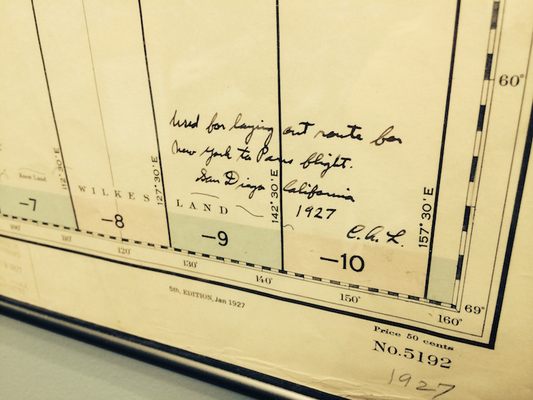 60°
Used for laying out route for
New York to Paris flight.
San Diego California
1927
C.A.L.
117°30'E
127°30'E
142°30'E
157°30'E
Knox Land
WILKES
LAND
-7
-8
-9
-10
69°
110°
120°
130°
140°
150°
160°
5th. EDITION, Jan 1927
Price 50 cents
No. 5192
1927